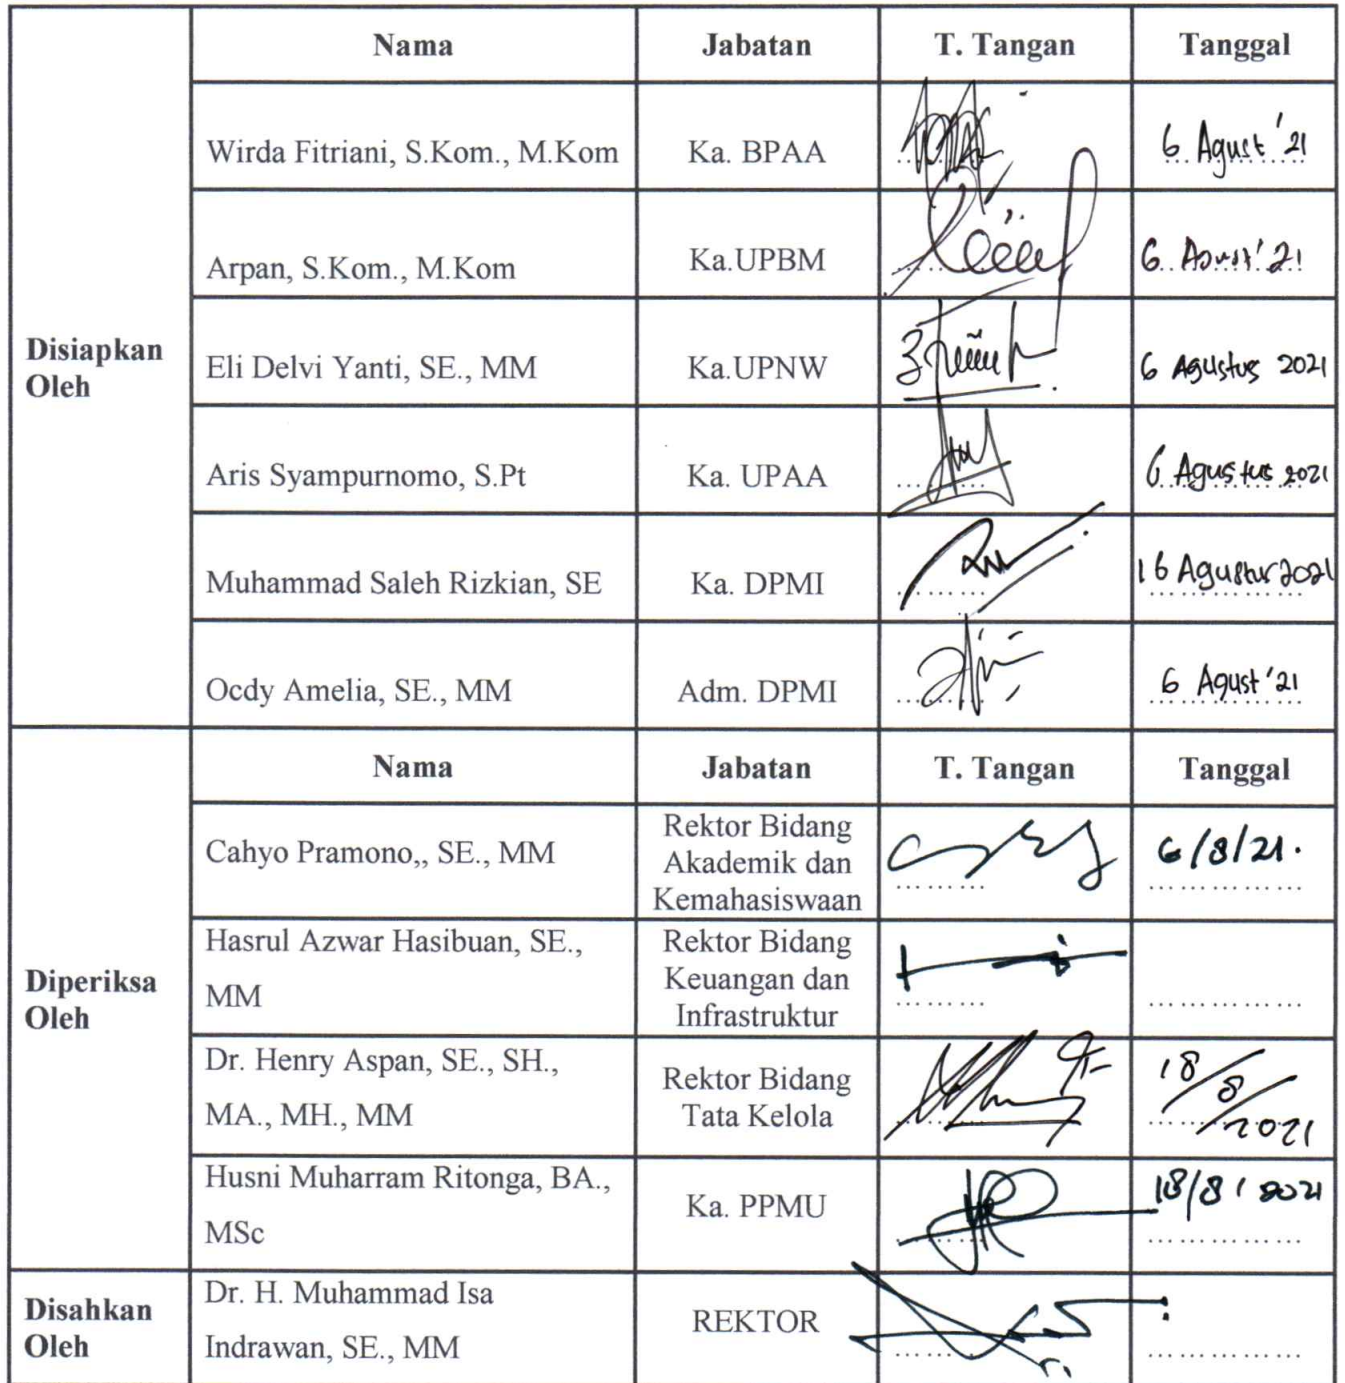 Nama Jabatan T. Tangan Tanggal
Disiapkan
Oleh
Wirda Fitriani, S.Kom., M.Kom Ka. BPAA 6 Agust '21
Arpan, S.Kom., M.Kom Ka.UPBM 6 '21
Eli Delvi Yanti, SE., MM Ka.UPNW 6 Agustus 2021
Aris Syampurnomo, S.Pt Ka. UPAA 6 Agustus 2021
Muhammad Saleh Rizkian, SE Ka. DPMI 16 Agustus 2021
Ocdy Amelia, SE., MM Adm. DPMI 6 Agust '21
Nama Jabatan T. Tangan Tanggal
Diperiksa
Oleh
Cahyo Pramono,, SE., MM Rektor Bidang
Akademik dan
Kemahasiswaan
6/8/21.
Hasrul Azwar Hasibuan, SE.,
MM
Rektor Bidang
Keuangan dan
Infrastruktur
Dr. Henry Aspan, SE., SH.,
MA., MH., MM
Rektor Bidang
Tata Kelola
18/8/2021
Husni Muharram Ritonga, BA.,
MSc
Ka. PPMU
18/8/2021
Disahkan
Oleh
Dr. H. Muhammad Isa
Indrawan, SE., MM
REKTOR